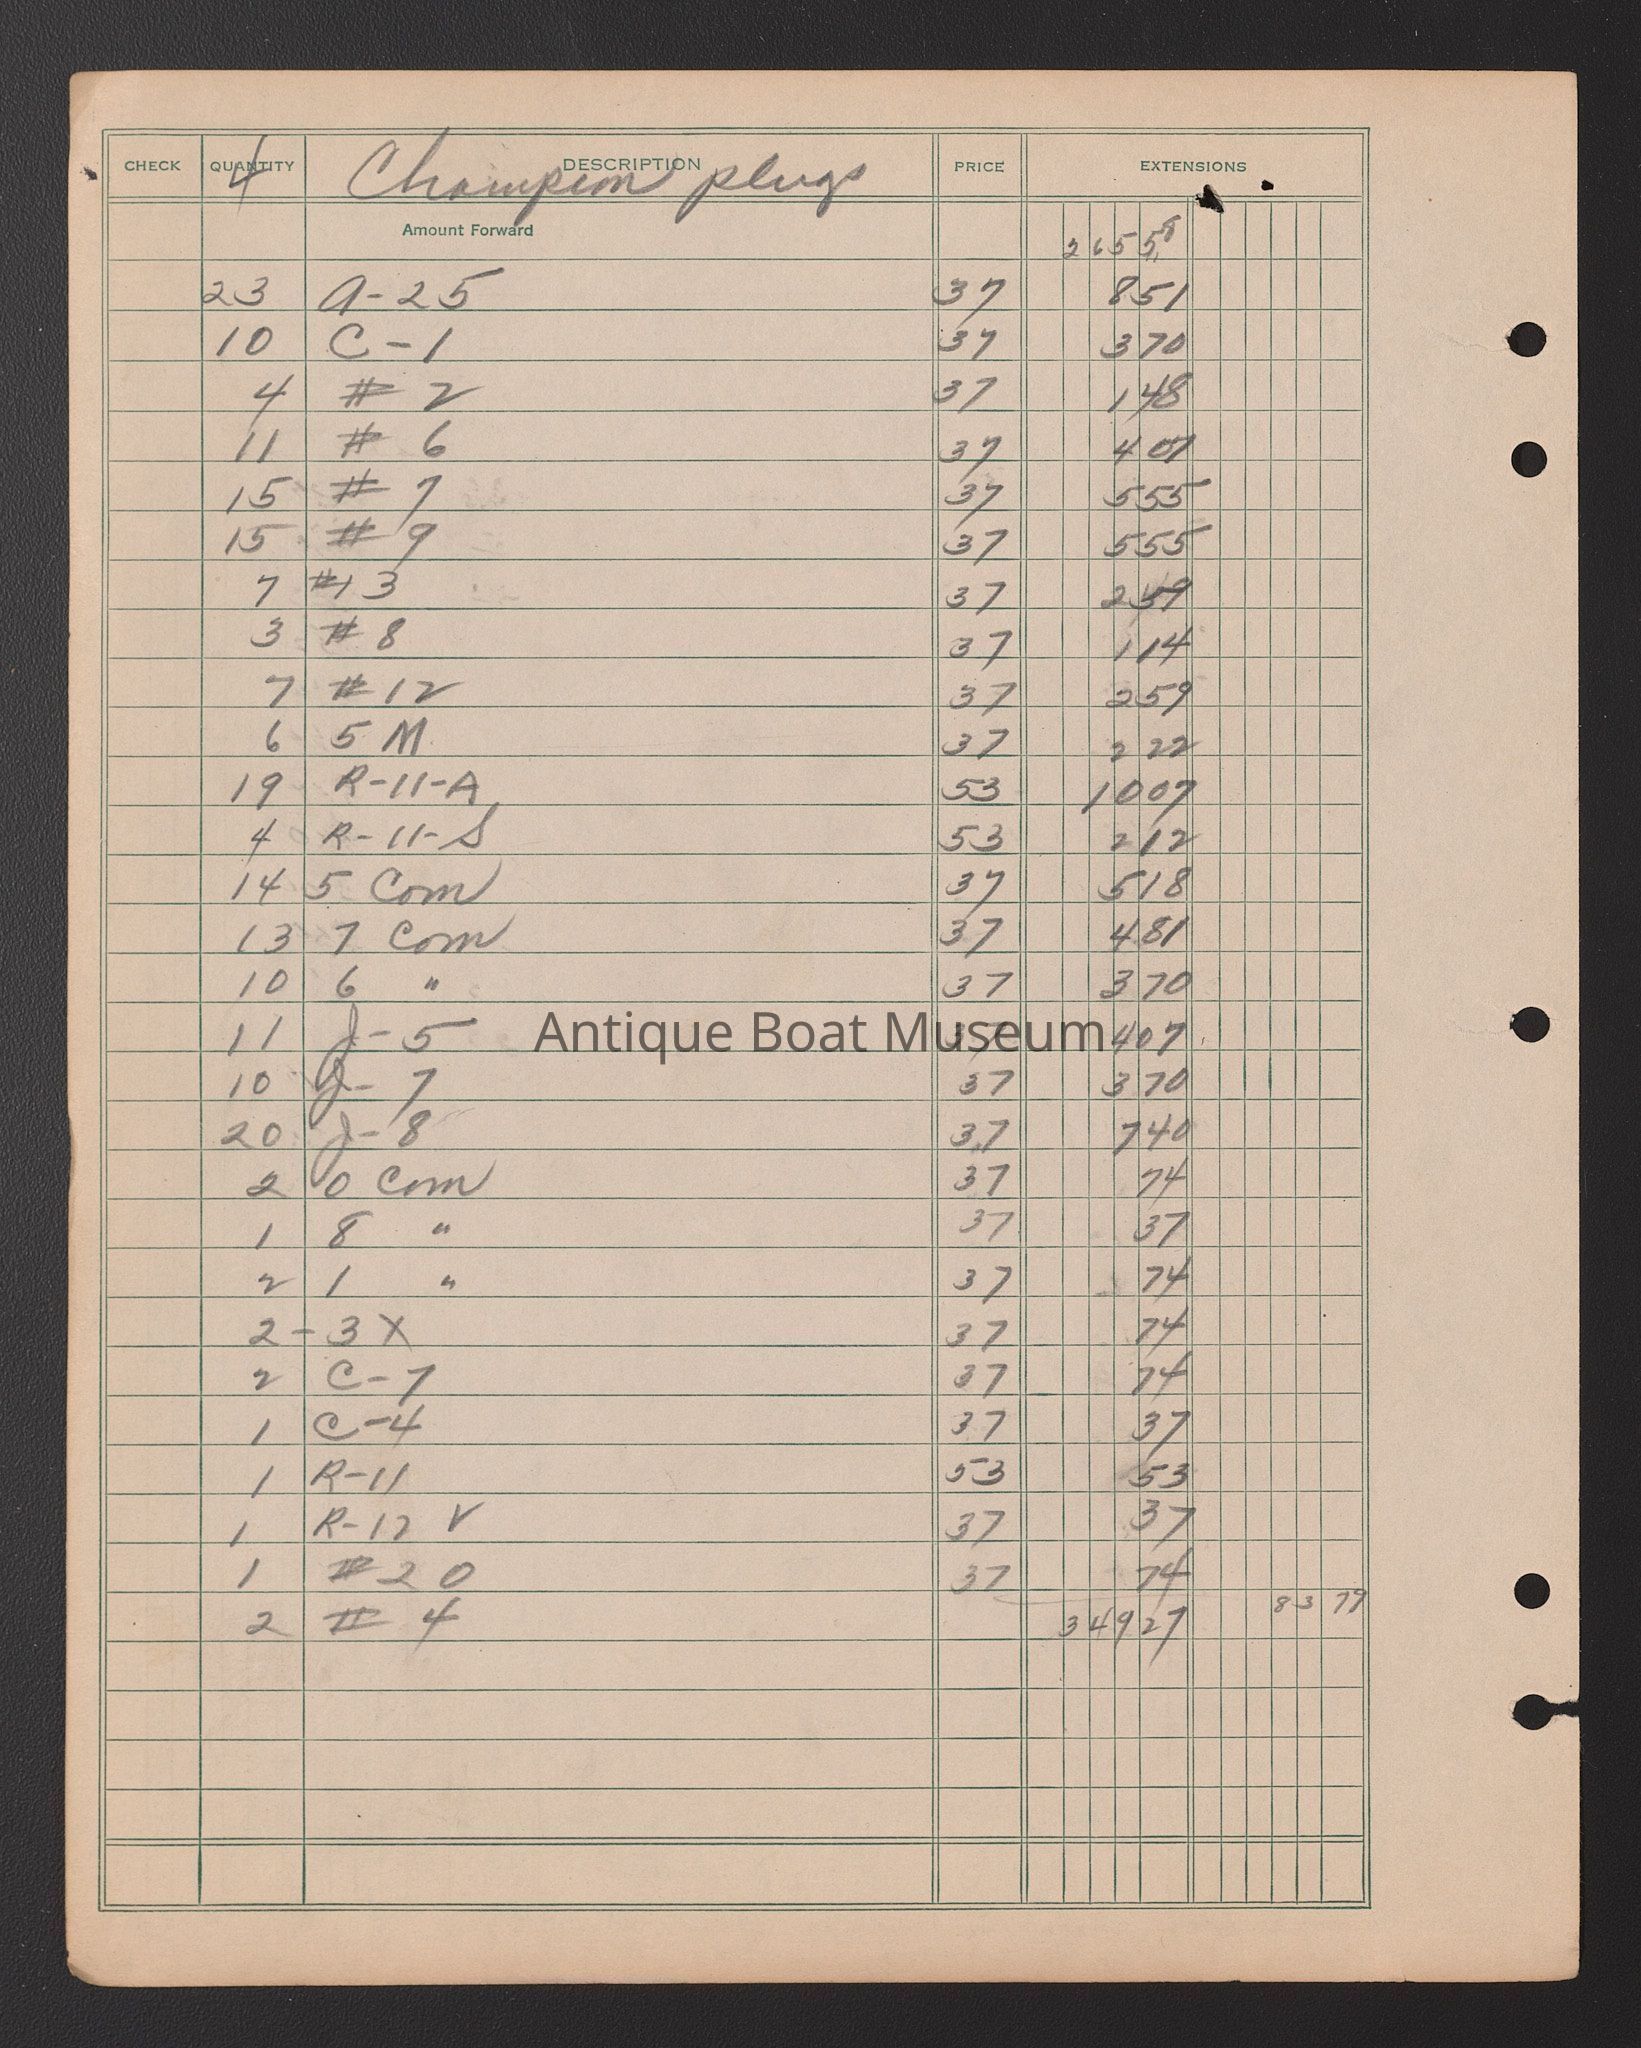 CHECK QUANTITY DESCRIPTION PRICE EXTENSIONS
4 Champion plugs
Amount Forward 26558
23 A-25 37 851
10 C-1 37 370
4 # 2 37 148
11 # 6 37 407
15 # 7 37 555
15 # 9 37 555
7 #13 37 259
3 #8 37 114
7 #12 37 259
6 5 M 37 222
19 R-11-A 53 1007
4 R-11-S 53 212
14 5 Com 37 518
13 7 Com 37 481
10 6 " 37 370
11 J-5 37 407
Antique Boat Museum
10 J-7 37 370
20 J-8 37 740
2 0 Com 37 74
1 8 " 37 37
2 1 " 37 74
2 - 3 X 37 74
2 C-7 37 74
1 C-4 37 37
1 R-11 53 53
1 R-12 V 37 37
1 #20 37 74
2 # 4 34927 83 79